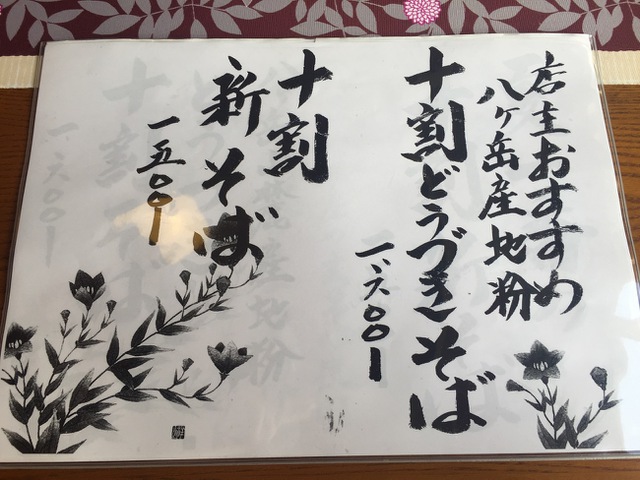 店主おすすめ
八ヶ岳産地粉
十割どうづきそば
一、六〇〇ー
十割
新そば
一五〇〇ー